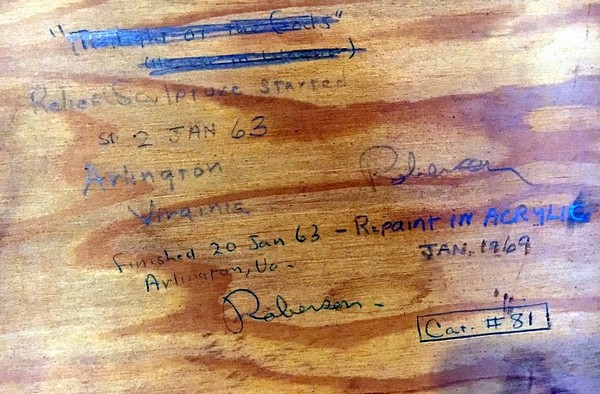 "The of the Gods"
Relief Sculpture started
2 JAN 63
Arlington
Virginia
Roberson
Finished 20 Jan 63 - Repaint IN ACRYLIC
Arlington, Va - JAN. 1969
Roberson -
Cat. # 81